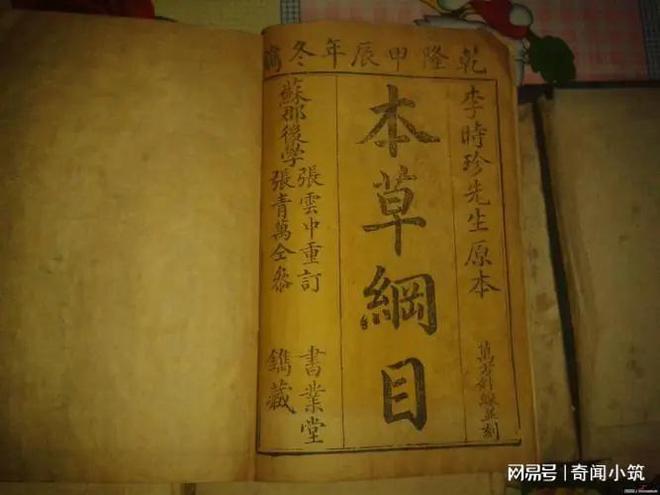 乾隆甲辰年冬鐫
李時珍先生原本
萬方針線並刻
本草綱目
蘇郡後學
張雲中重訂
張青萬仝叅
書業堂
鐫藏
网易号 | 奇闻小筑